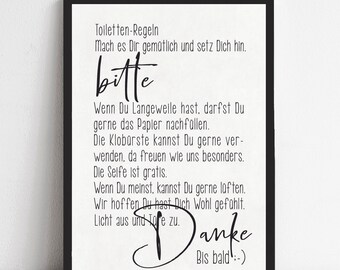 Toiletten-Regeln
Mach es Dir gemütlich und setz Dich hin.
bitte
Wenn Du Langeweile hast, darfst Du
gerne das Papier nachfüllen.
Die Klobürste kannst Du gerne ver-
wenden, da freuen wie uns besonders.
Die Seife ist gratis.
Wenn Du meinst, kannst Du gerne lüften.
Wir hoffen Du hast Dich Wohl gefühlt.
Licht aus und Türe zu.
Danke
Bis bald :-)